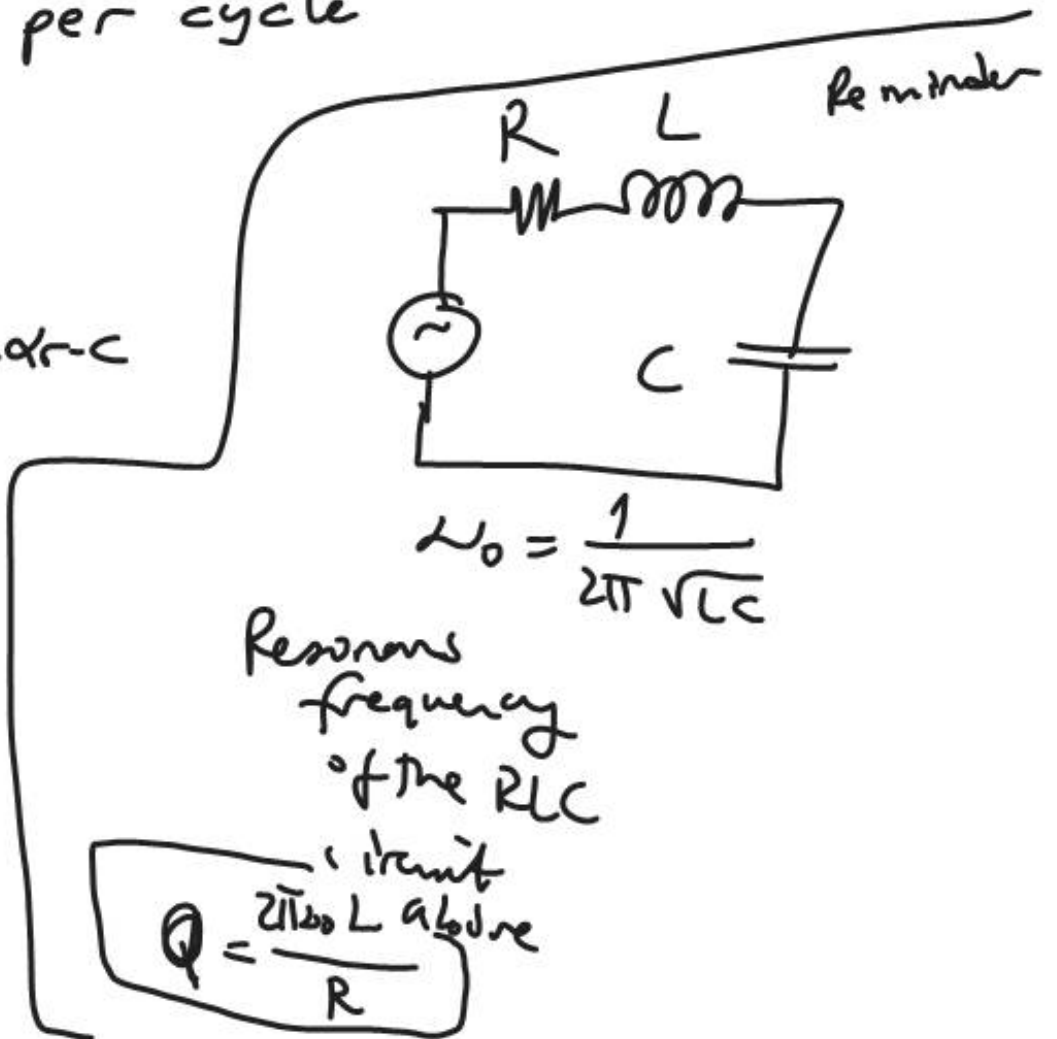 per cycle
Reminder
R L
αr-C
~
C
ν₀ = 1 / 2π √LC
Resonans
frequency
of the RLC
circuit
above
Q = 2πν₀ L / R